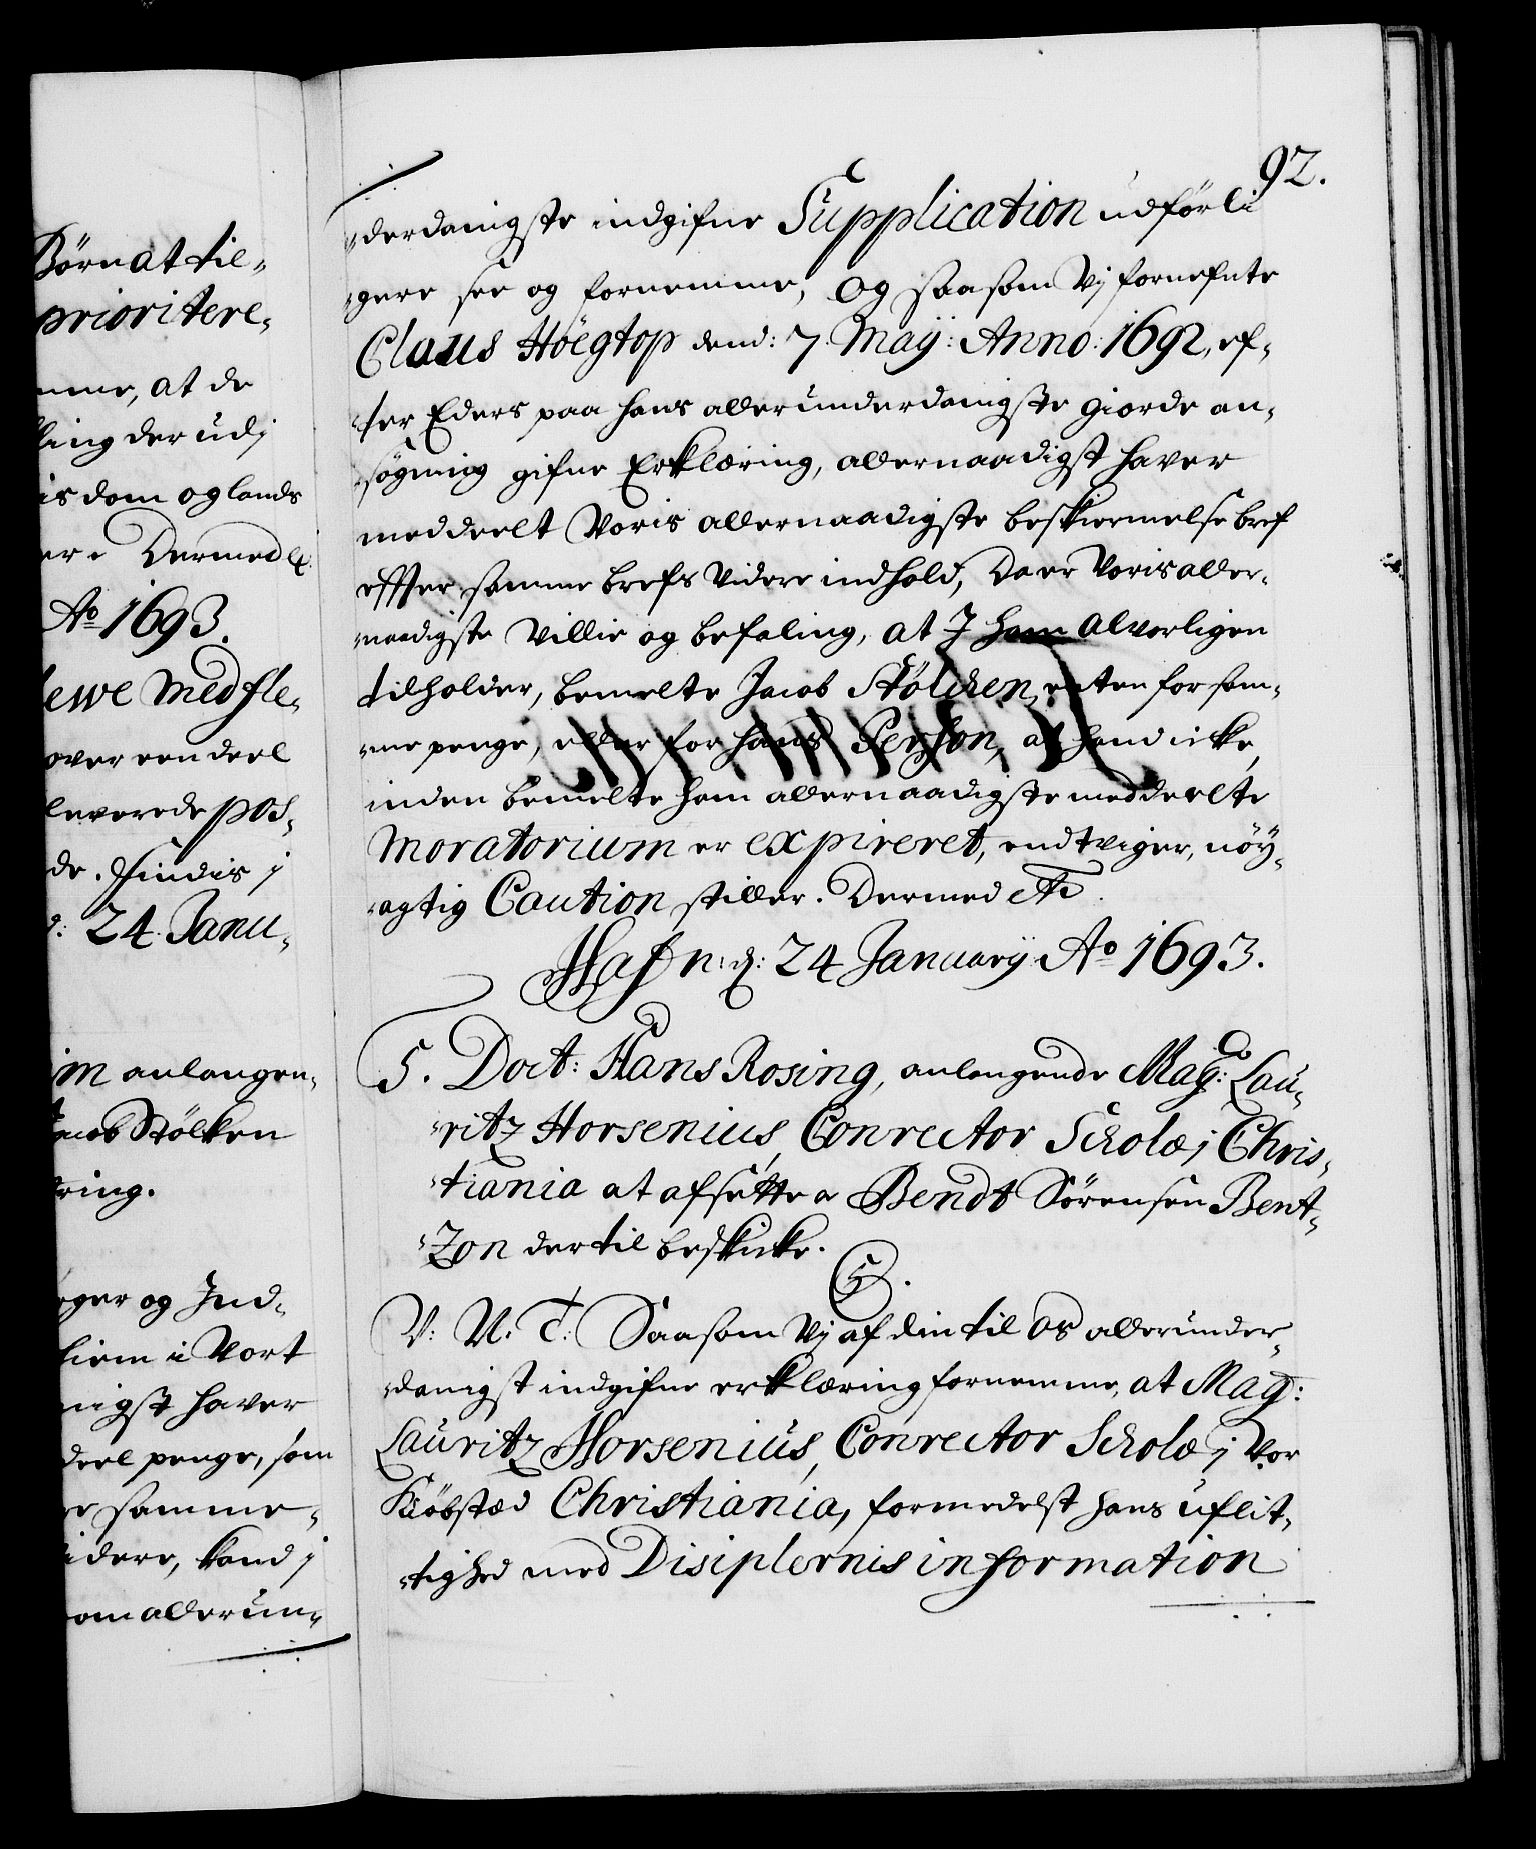 Børn at til-
prioritere-
mme, at de
ling der udj
is dom og lands
ere Dermed ꝛc.
Ao 1693.
ewe med fle-
over een deel
leverede pos-
de. Findis j
d: 24. Janu-
im anlangen-
Jacob Stølken
ring.
ger og Ind-
tiem i Vort
nigst haver
deel penge, som
e samme-
idere, kand j
om allerun-
92.
derdanigste indgifne Supplication udførli
gere see og fornemme, Og saasom Vj fornefnte
Claus Höegtop dend: 7. Maÿ: Anno: 1692, ef-
ter Eders paa hans allerunderdanigste giorde an-
søgning gifne Erklæring, allernaadigst haver
meddeelt Voris allernaadigste beskiermelse bref
effter samme brefs Videre indhold, Da er Voris aller-
naadigste Villie og befaling, at J ham alvorligen
tilholder, bemelte Jacob Stölchen, enten for sam-
me penge, eller for hans Person, at hand icke,
inden bemelte ham allernaadigste meddeelte
Moratorium er expireret, endtviger, nöÿ-
agtig Caution stiller. Dermed etc.
Hafn: d: 24 Januarÿ Ao 1693.
5. Doct: Hans Rosing, anlangende Mag: Lau-
ritz Horsenius, Conrector Scholæ j Chris-
tiania at afsette oc Bendt Sörensen Bent-
Zon dertil beskicke.
V: U. T: Saasom Vj af din til Os allerunder-
danigst indgifne erklæring fornemme, at Mag:
Lauritz Horsenius, Conrector Scholæ j Vor
Kiöbstæd Christiania, formedelst hans uflit-
tighed med Disiplernis information